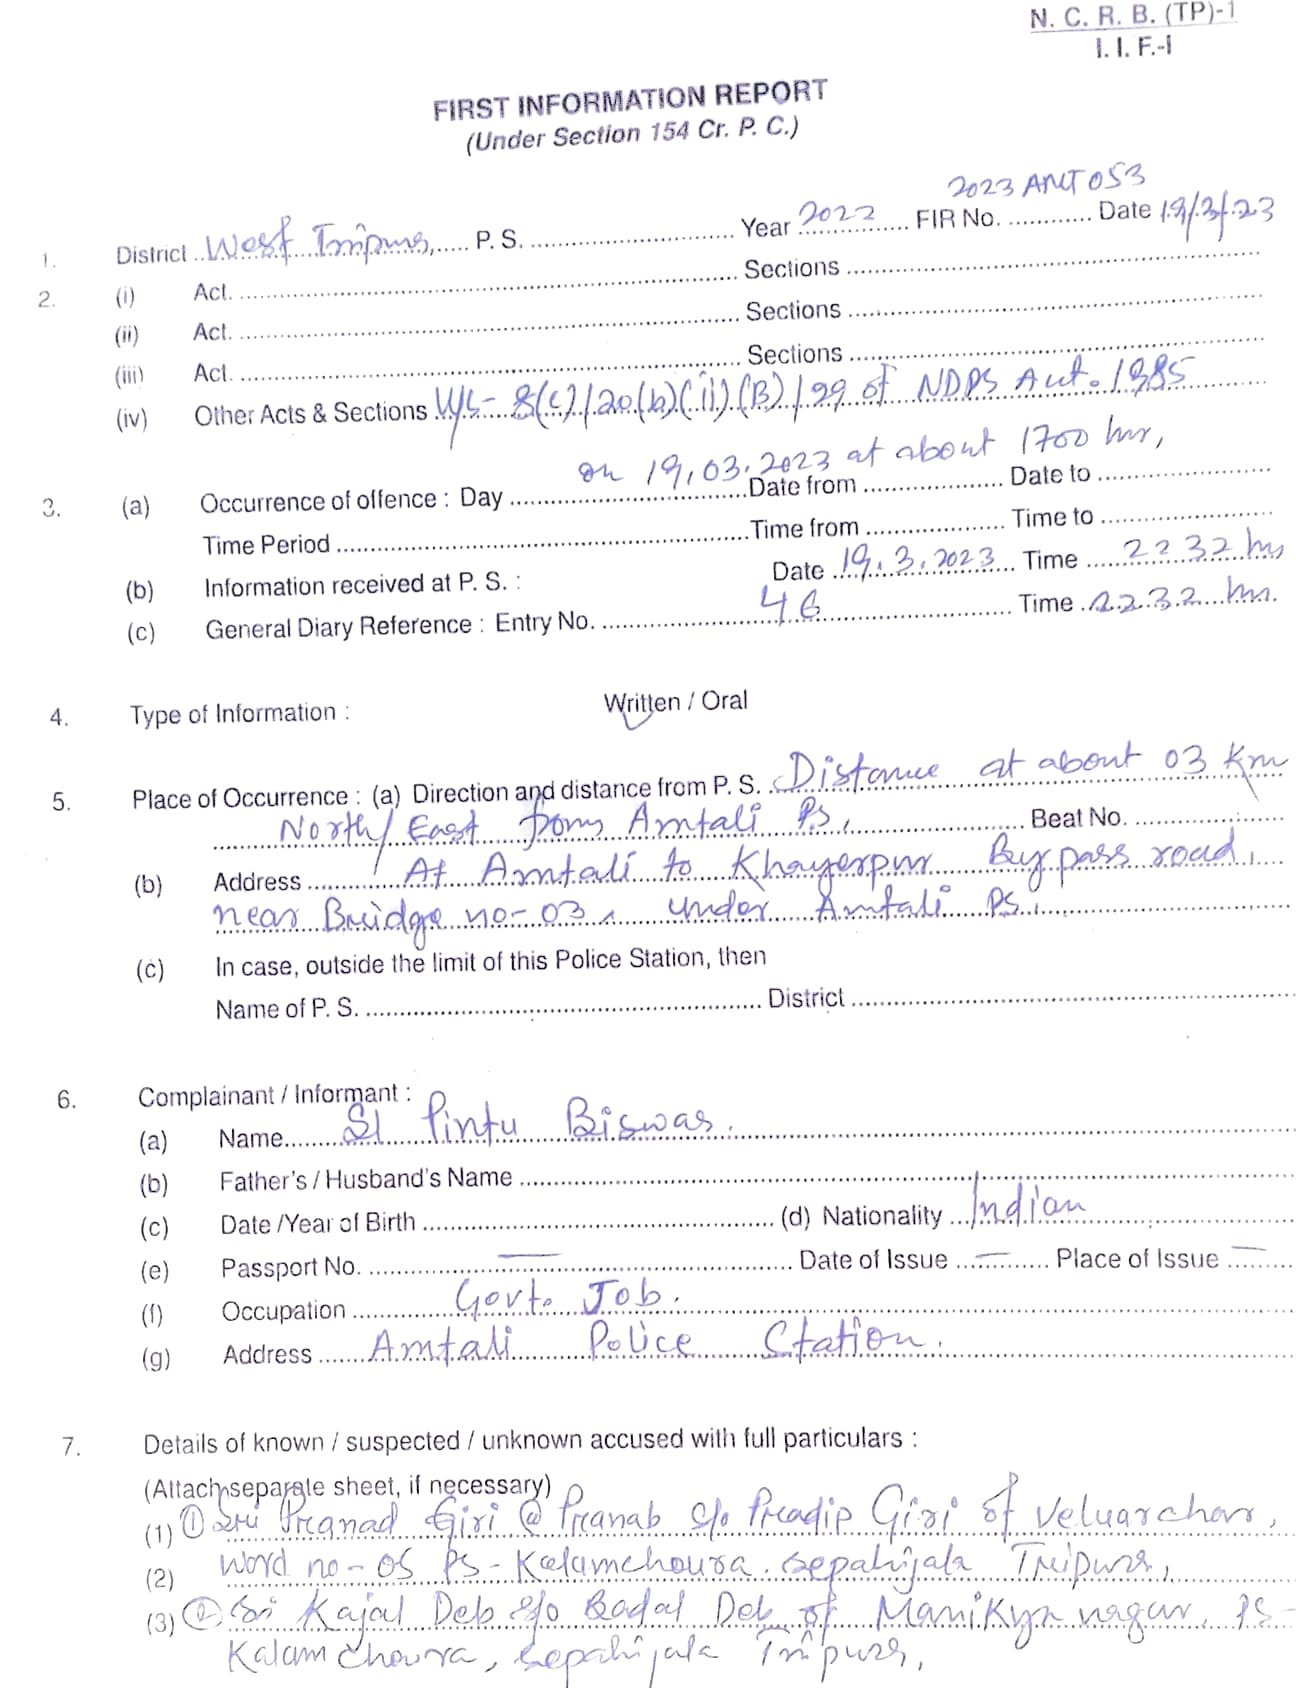 N. C. R. B. (TP)-1
I. I. F.-I
FIRST INFORMATION REPORT
(Under Section 154 Cr. P. C.)
2023 AMT 053
1. District West Tripura, P. S. Year 2022 FIR No. Date 19/3/23
2. (i) Act. Sections
(ii) Act. Sections
(iii) Act. Sections
(iv) Other Acts & Sections U/S- 8(c)/20(b)(ii)(B)/29 of NDPS Act. 1985
on 19.03.2023 at about 1700 hrs,
3. (a) Occurrence of offence : Day Date from Date to
Time Period Time from Time to
(b) Information received at P. S. : Date 19.3.2023 Time 2232 hrs
(c) General Diary Reference : Entry No. 46 Time 2232 hrs.
4. Type of Information : Written / Oral
5. Place of Occurrence : (a) Direction and distance from P. S. Distance at about 03 Km
North/East from Amtali PS, Beat No.
(b) Address At Amtali to Khayerpur Bypass road,
near Bridge no-03, under Amtali PS.
(c) In case, outside the limit of this Police Station, then
Name of P. S. District
6. Complainant / Informant :
(a) Name SI Pintu Biswas.
(b) Father's / Husband's Name
(c) Date /Year of Birth (d) Nationality Indian
(e) Passport No. — Date of Issue — Place of Issue —
(f) Occupation Govt. Job.
(g) Address Amtali Police Station.
7. Details of known / suspected / unknown accused with full particulars :
(Attach separate sheet, if necessary)
(1) ① Sri Pranad Giri @ Pranab S/o Pradip Giri of Veluarchar,
(2) Word no-05 PS-Kalamchoura. Sepahijala Tripura,
(3) ② Sri Kajal Deb S/o Badal Deb of Manikya nagar, PS-
Kalamchoura, Sepahijala Tripura,